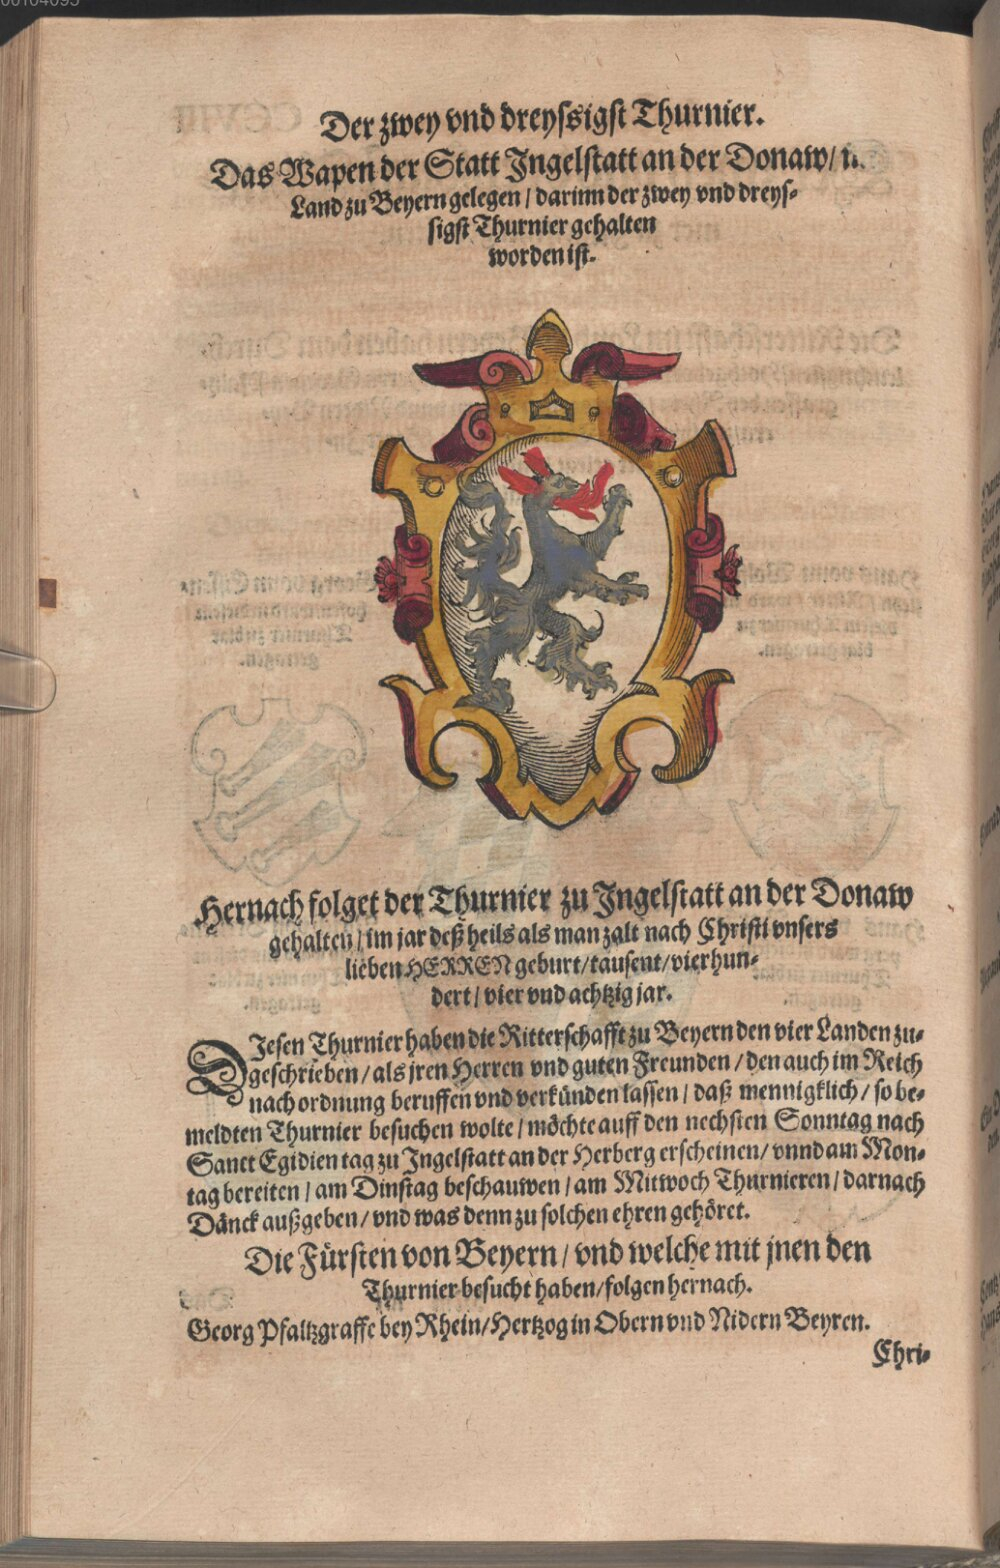 Der zwey vnd dreyssigst Thurnier.
Das Wapen der Statt Ingelstatt an der Donaw/
Land zu Beyern gelegen / darinn der zwey vnd dreys-
sigst Thurnier gehalten
worden ist.
Hernach folget der Thurnier zu Ingelstatt an der Donaw
gehalten / im jar deß heils als man zalt nach Christi vnsers
lieben HERREN geburt/tausent/vierhun-
dert / vier vnd achtzig jar.
DIesen Thurnier haben die Ritterschafft zu Beyern den vier Landen zu-
geschrieben / als jren Herren vnd guten Freunden / den auch im Reich
nach ordnung beruffen vnd verkünden lassen / daß mennigklich / so be-
meldten Thurnier besuchen wolte / möchte auff den nechsten Sonntag nach
Sanct Egidien tag zu Ingelstatt an der Herberg erscheinen/ vnnd am Mon-
tag bereiten / am Dinstag beschauwen / am Mittwoch Thurnieren / darnach
Dänck außgeben / vnd was denn zu solchen ehren gehöret.
Die Fürsten von Beyern / vnd welche mit jnen den
Thurnier besucht haben/folgen hernach.
Georg Pfaltzgraffe bey Rhein/Hertzog in Obern vnd Nidern Beyren.
Chri-